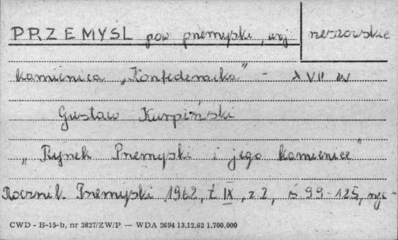 PRZEMYŚL pow przemyski, woj rzeszowskie
kamienica „Konfederacka" - XVII w
Gustaw Kurpiński
„Rynek Przemyski i jego kamienice"
Rocznik Przemyski 1962, t IX, z 2, s 99-125,
CWD - B-15-b, nr 2627/ZW/P. — WDA 2694 13.12.62 1.700.000